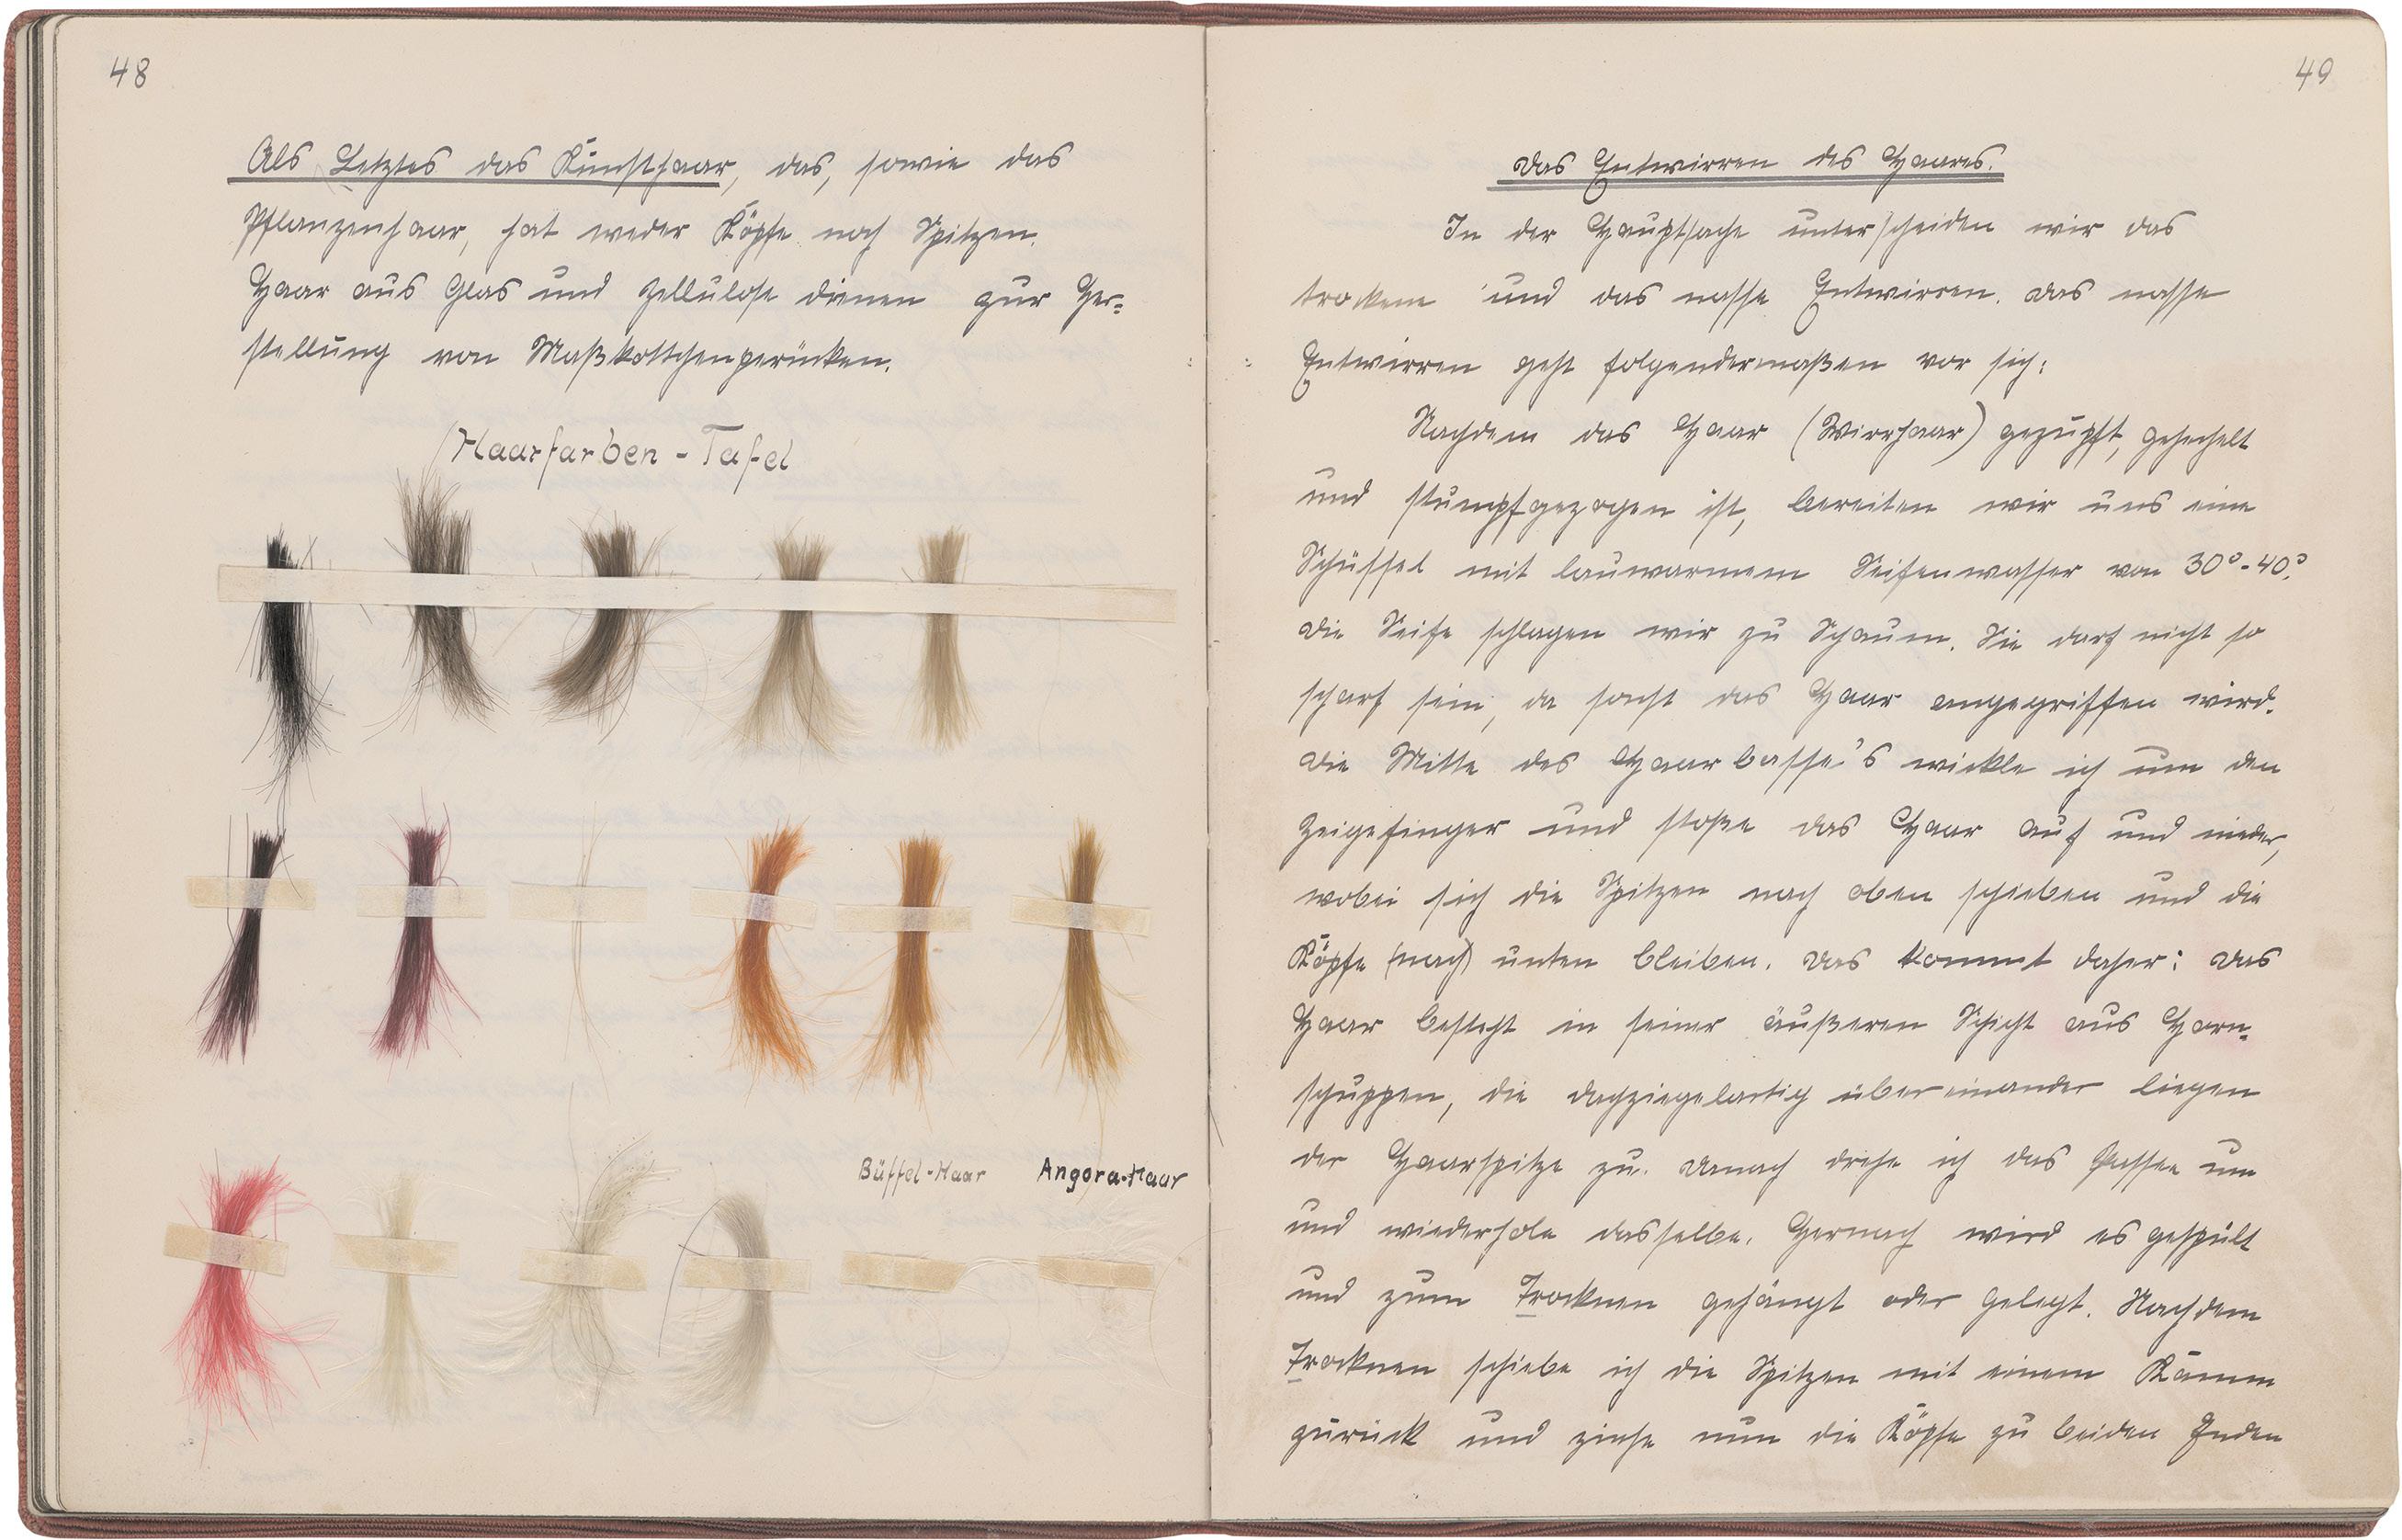 48
Als Letztes das Kunsthaar, das, sowie das
Pflanzenhaar, hat weder Köpfe noch Spitzen.
Haar aus Glas und Zellulose dienen zur Her=
stellung von Maßkottchenperücken.
Haarfarben-Tafel
Büffel-Haar Angora-Haar
49
Das Entwirren des Haares.
In der Hauptsache unterscheiden wir das
trockene und das nasse Entwirren. Das nasse
Entwirren geht folgendermaßen vor sich:
Nachdem das Haar (Wirrhaar) gezupft, gehechelt
und stumpfgezogen ist, bereiten wir uns eine
Schüssel mit lauwarmem Seifenwasser von 30°-40°.
Die Seife schlagen wir zu Schaum. Sie darf nicht so
scharf sein, da sonst das Haar angegriffen wird.
Die Mitte des Haarbasse's wickle ich um den
Zeigefinger und stoße das Haar auf und nieder,
wobei sich die Spitzen nach oben schieben und die
Köpfe (nach) unten bleiben. Das kommt daher: Das
Haar besteht in seiner äußeren Schicht aus Horn=
schuppen, die dachziegelartig übereinander liegen
der Haarspitze zu. Danach drehe ich das um
und wiederhole dasselbe. Hernach wird es gespült
und zum Trocknen gehängt oder gelegt. Nachdem
Trocknen schiebe ich die Spitzen mit einem Kamm
zurück und ziehe nun die Köpfe zu beiden Enden